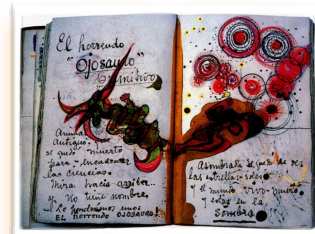 El horrendo
"Ojosauro"
Primitivo
Animal
Antiguo,
se quedó muerto
para encadenar
las ciencias.
Mira hacia arriba..
Y No tiene nombre.
EL HORRENDO OJOSAURO!
Asombrada se quedó de ver
las estrellas-soles
y el mundo vivo-muerto
y estar en la
SOMBRA